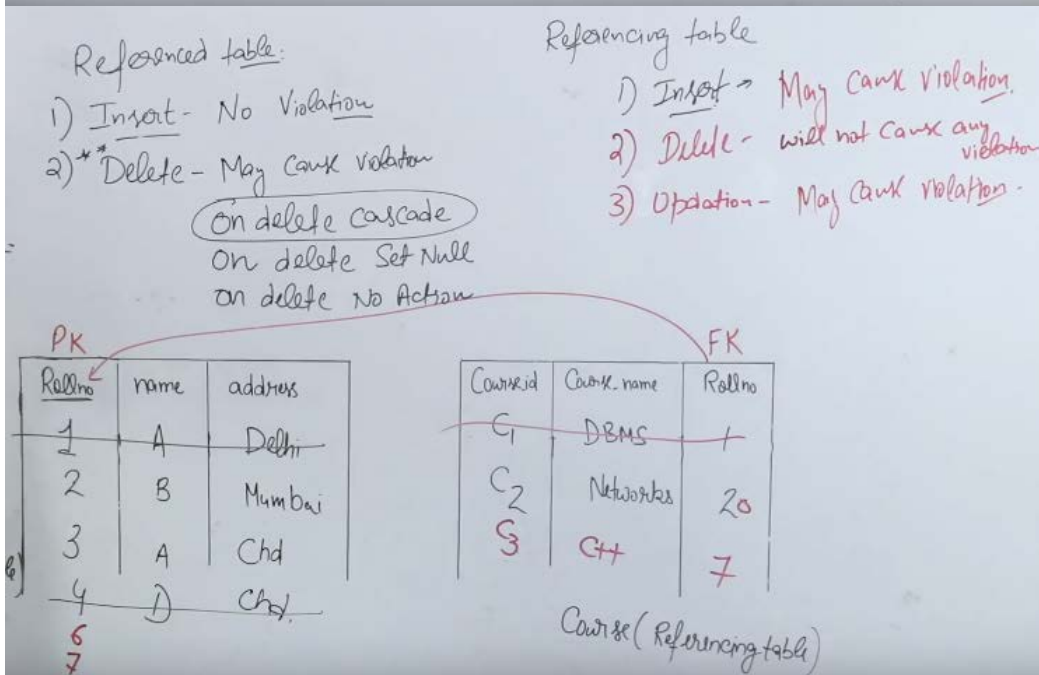 Referenced table:
1) Insert - No Violation
2) ** Delete - May cause violation
on delete cascade
on delete Set Null
on delete No Action
Referencing table
1) Insert → May cause violation.
2) Delete - will not cause any
violation
3) Updation - May cause violation.
PK
Rollno name address
1 A Delhi
2 B Mumbai
3 A Chd
4 D Chd.
6
7
FK
Course.id Course.name Rollno
C1 DBMS 1
C2 Networks 20
C3 C++ 7
Course (Referencing table)